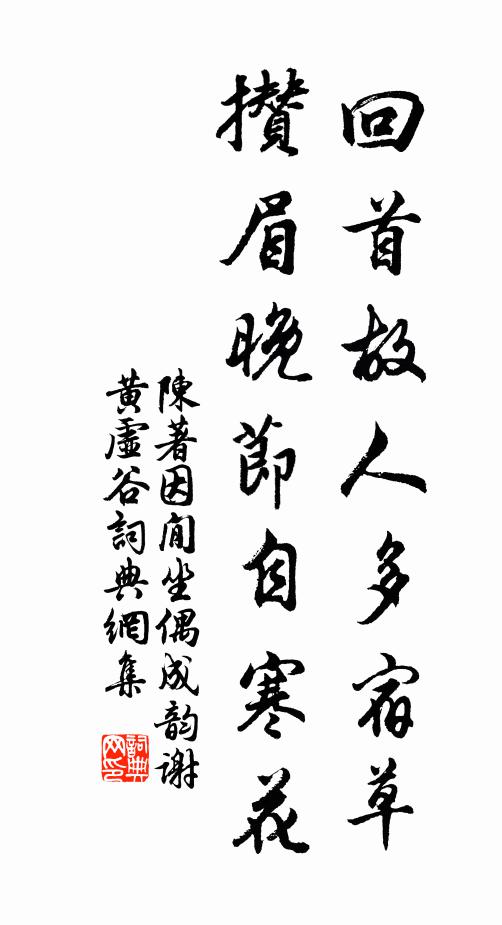 回首故人多宿草
攢眉晚節自寒花
陳著因閒坐偶成韵謝
黃虛谷詞典網集
詞典網印